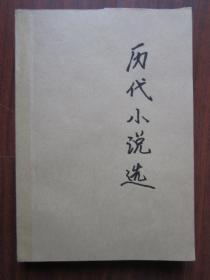 历代小说选